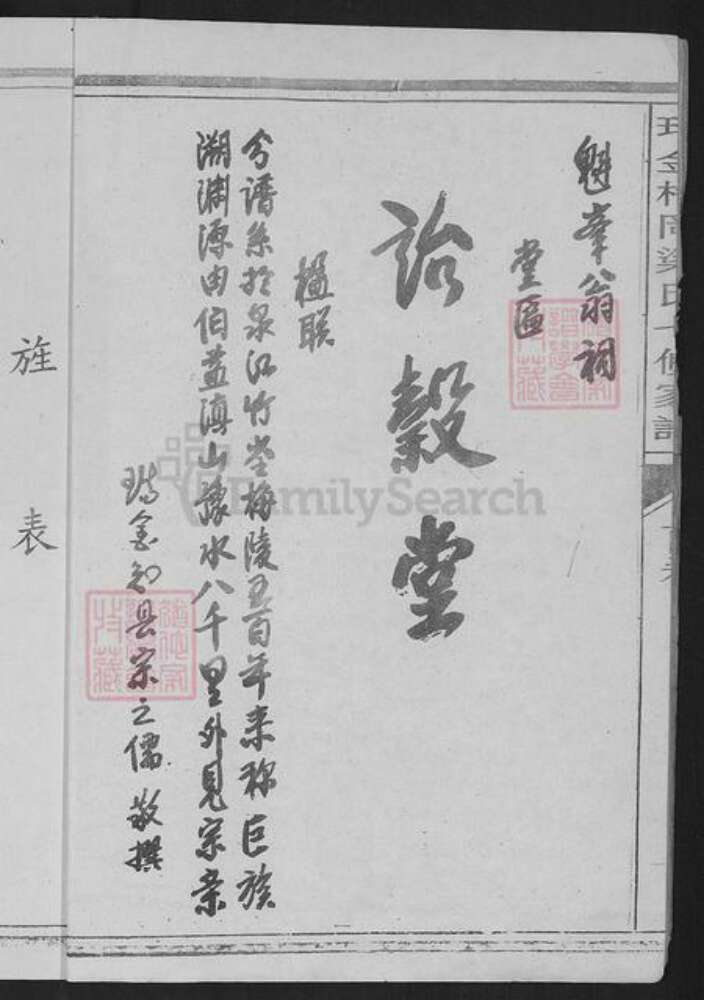 魁峯公翁祠
堂匾
詒穀堂
楹联
分譜系於泉江竹堂梅陵五百年来称巨族
溯渊源由伯益滇山豫水八千里外見宗亲
瑞金知县宗之儒敬撰
旌表
FamilySearch